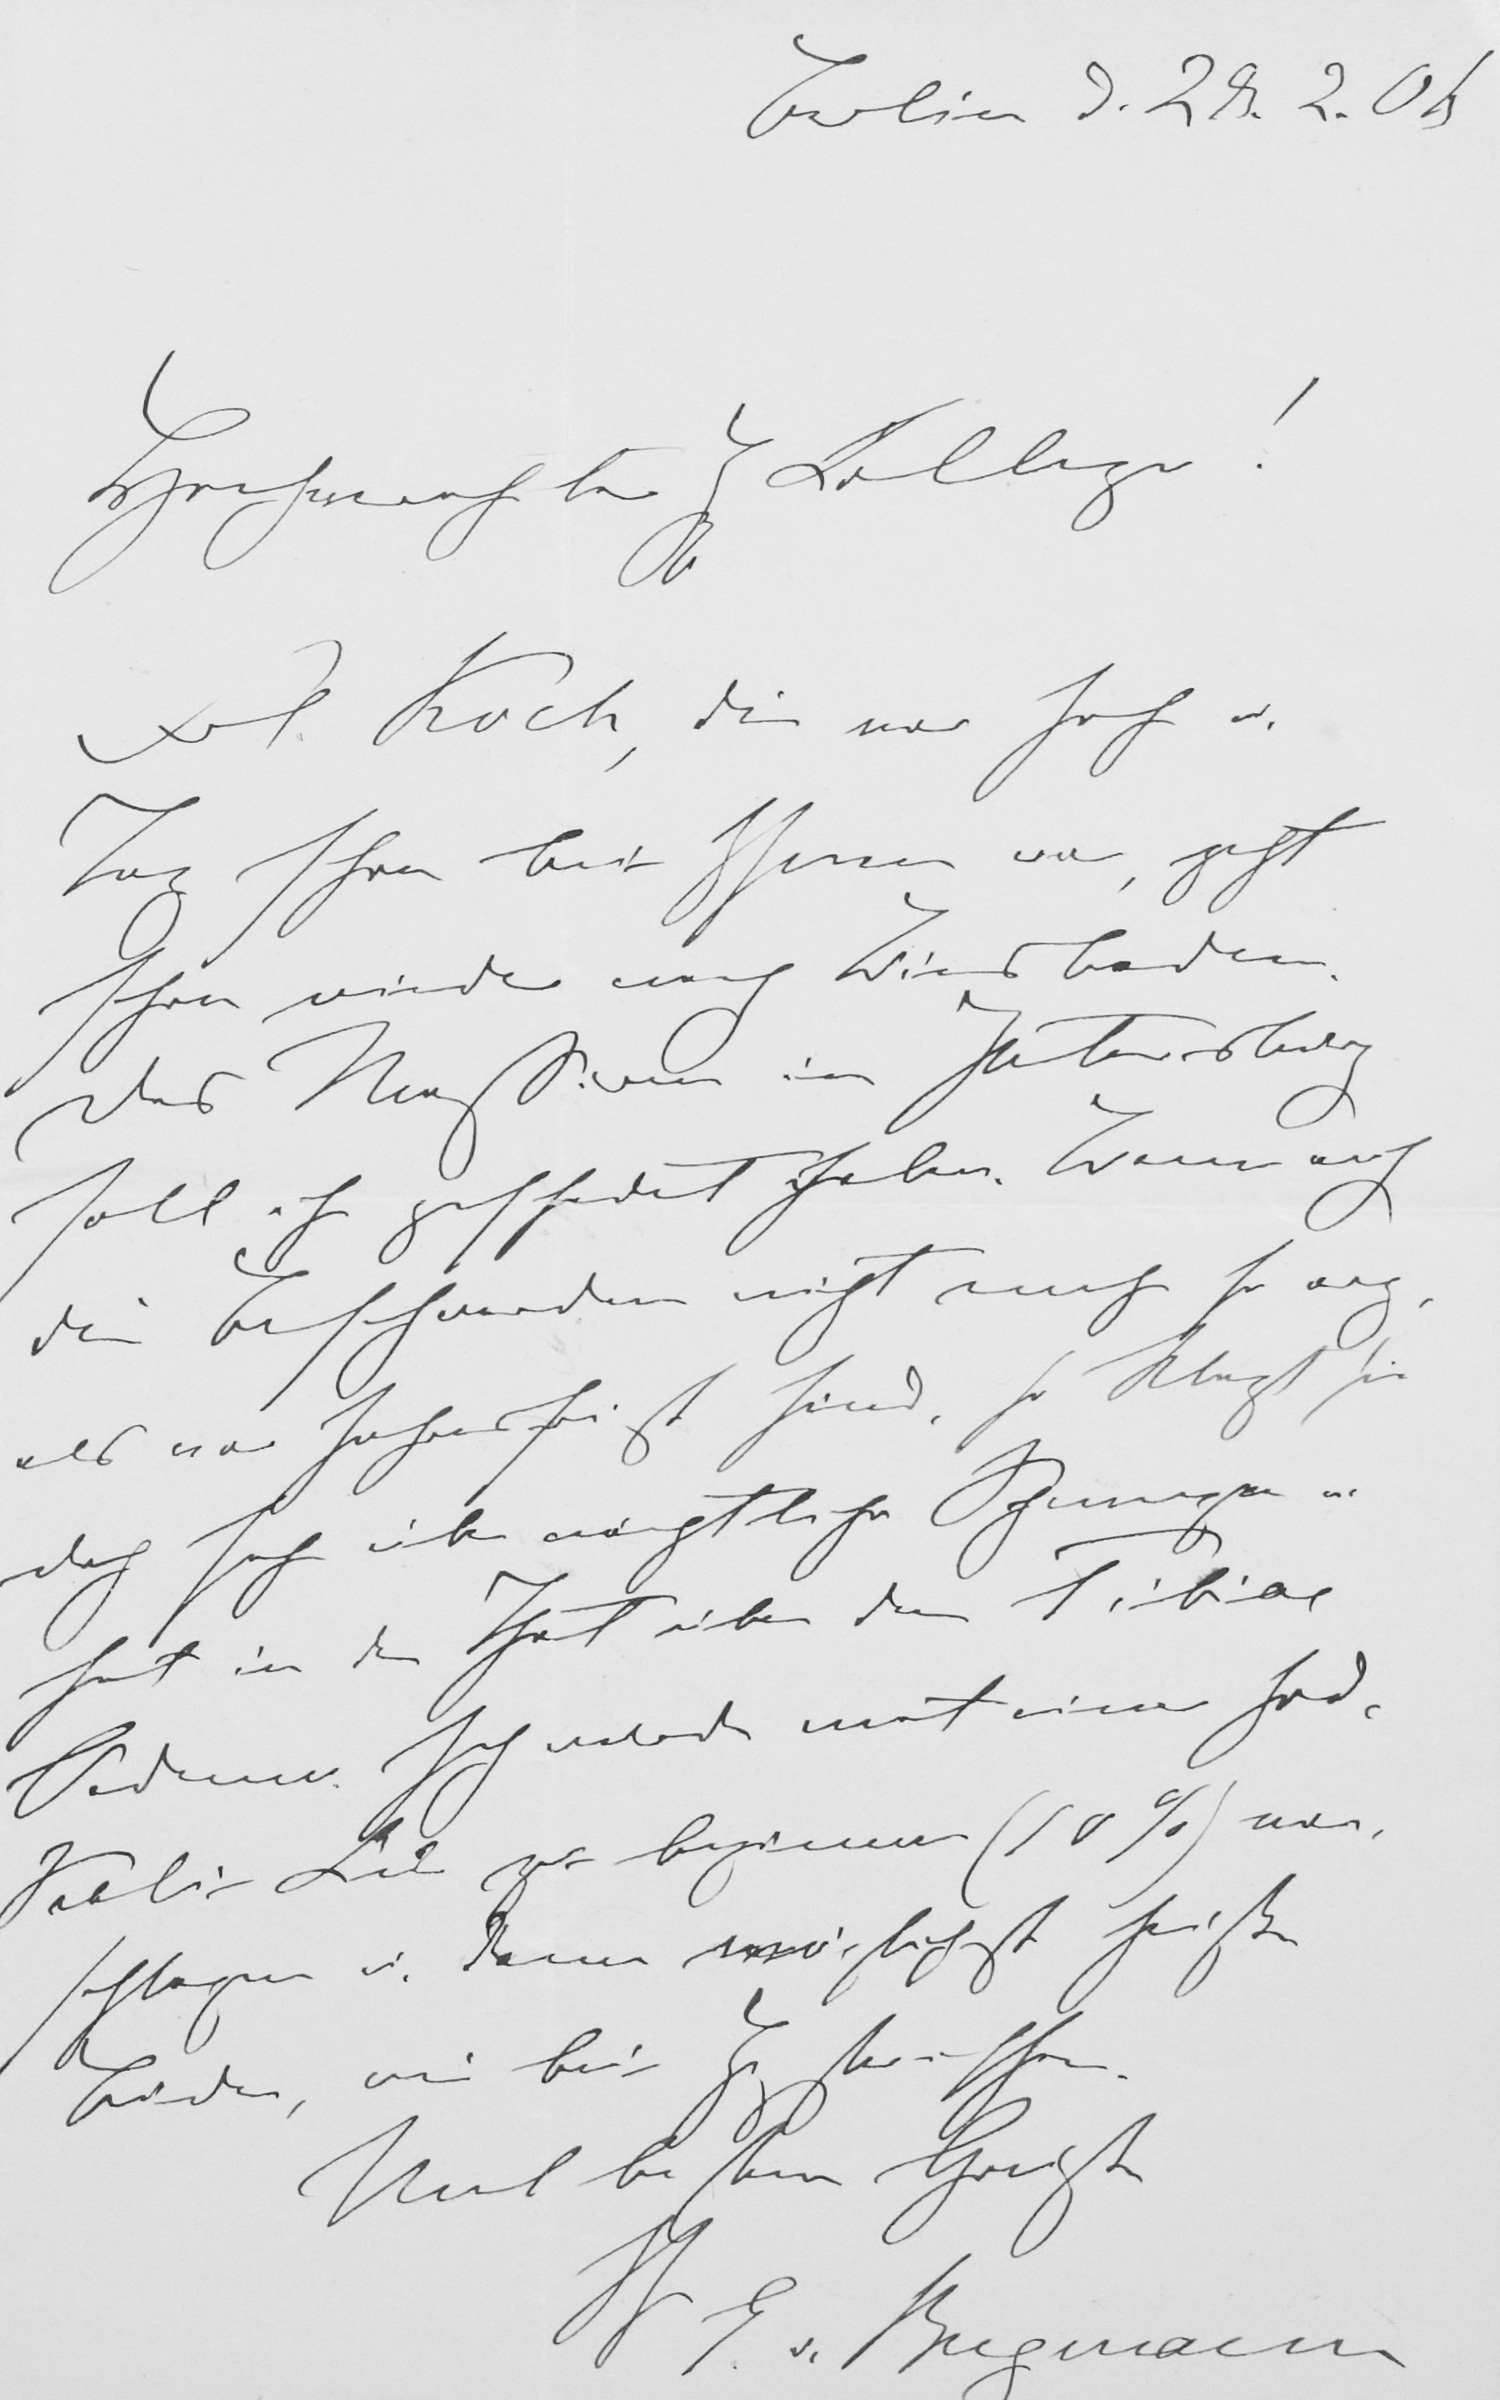 Berlin d. 28. 2. 06
Hochverehrter H Kollege!
Frl. Koch, die vor Jahr u.
Tag schon bei Ihnen war, geht
schon wieder nach Wiesbaden.
Das Massiren in Petersburg
soll ihr geschadet haben. Wenn auch
die Beschwerden nicht mehr so arg,
als vor Jahresfrist sind, so klagt sie
doch sehr über nächtliche Schmerzen u.
hat in der That über den Tibiae
Oedeme. Ich würde mit einer Jod-
Kali Kur zu beginnen (10 %) vor-
schlagen u. dann möglichst heiße
Bäder, wie bei
Mit besten Grüßen
Ihr
E. v. Bergmann